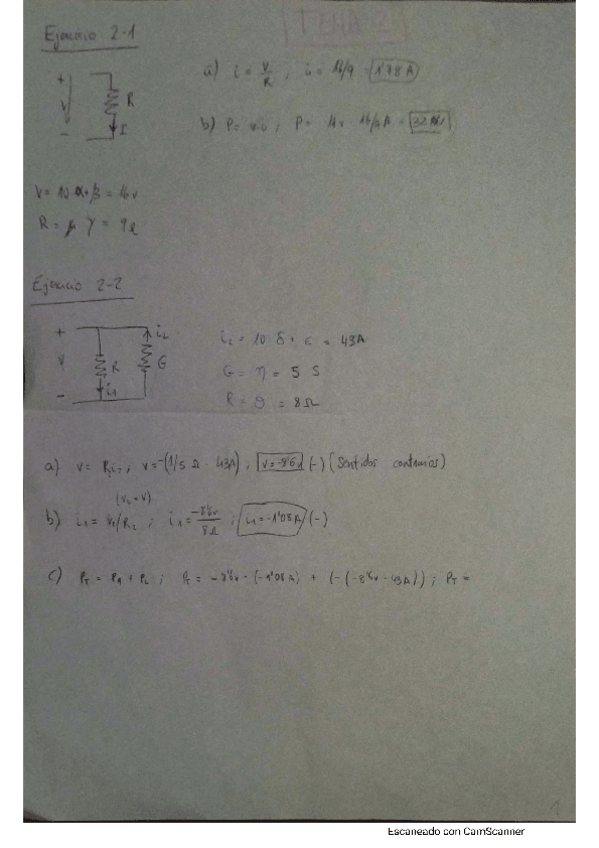 TEMA 2
Ejercicio 2-1
a) i = V/R ; i = 16/9 = 1'78 A
+
V
R
I
-
b) P = v·i ; P = 16v · 16/9 A =
V = 10 α + β = 16 v
R = γ = 9 Ω
Ejercicio 2-2
+
V
-
R
i₁
i₂
G
i₂ = 10 δ + ε = 43A
G = η = 5 S
R = ϑ = 8 Ω
a) v = R₂i₂ ; v = -(1/5 Ω · 43A) ; v = -8'6v (-) (Sentidos contrarios)
b) i₁ = V₁/R₂ ; i₁ = -8'6v/8Ω ; i₁ = -1'08 A (-)
c) P_T = P₁ + P₂ ; P_T = -8'6v · (-1'08A) + (-(-8'6v · 43A)) ; P_T =
1
Escaneado con CamScanner